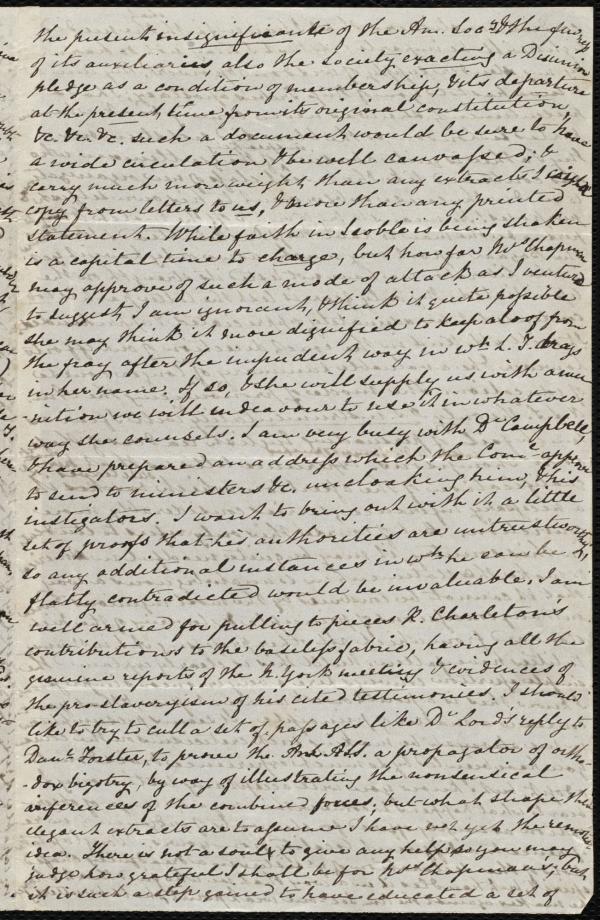 the present insignificante of the Am. Soc.y & the fewness
of its auxiliaries, also the Society exacting a Disunion
pledge as a condition of membership, & its departure
at the present time from its original constitution
&c. &c. &c. such a document would be sure to have
a wide circulation & be well canvassed; &
carry much more weight than any extracts I might
copy from letters to us, & more than any printed
statement. While faith in Scoble is being shaken
is a capital time to charge, but how far Mrs Chapman
may approve of such a mode of attack as I ventured
to suggest, I am ignorant, & think it quite possible
she may think it more dignified to keep aloof from
the fray after the impudent way in wh. L. T. drags
in her name. If so, & she will supply us with ammu
-nition we will endeavour to use it in whatever
way she counsels. I am very busy with Dr Campbell,
& have prepared an address which the Com- approve
to send to ministers &c. uncloaking him, & his
instigators. I want to bring out with it a little
set of proofs that his authorities are untrustworthy,
so any additional instances in wh. he can be
flatly contradicted would be invaluable. I am
well armed for pulling to pieces R. Charleton's
contributions to the baseless fabric, having all the
genuine reports of the N. York meeting & evidences of
the proslaveryism of his cited testimonies. I should
like to try to cull a set of passages like Dr Lord's reply to
Danl. Forster, to prove the Am. Ass. a propagator of ortho-
-dox bigotry, by way of illustrating the nonsensical
references of the combined forces; but what shape these
elegant extracts are to assume I have not yet the remotest
idea. There is not a soul to give any help so you may
judge how grateful I shall be for Mrs Chapman's; but
it is such a step gained to have educated a set of